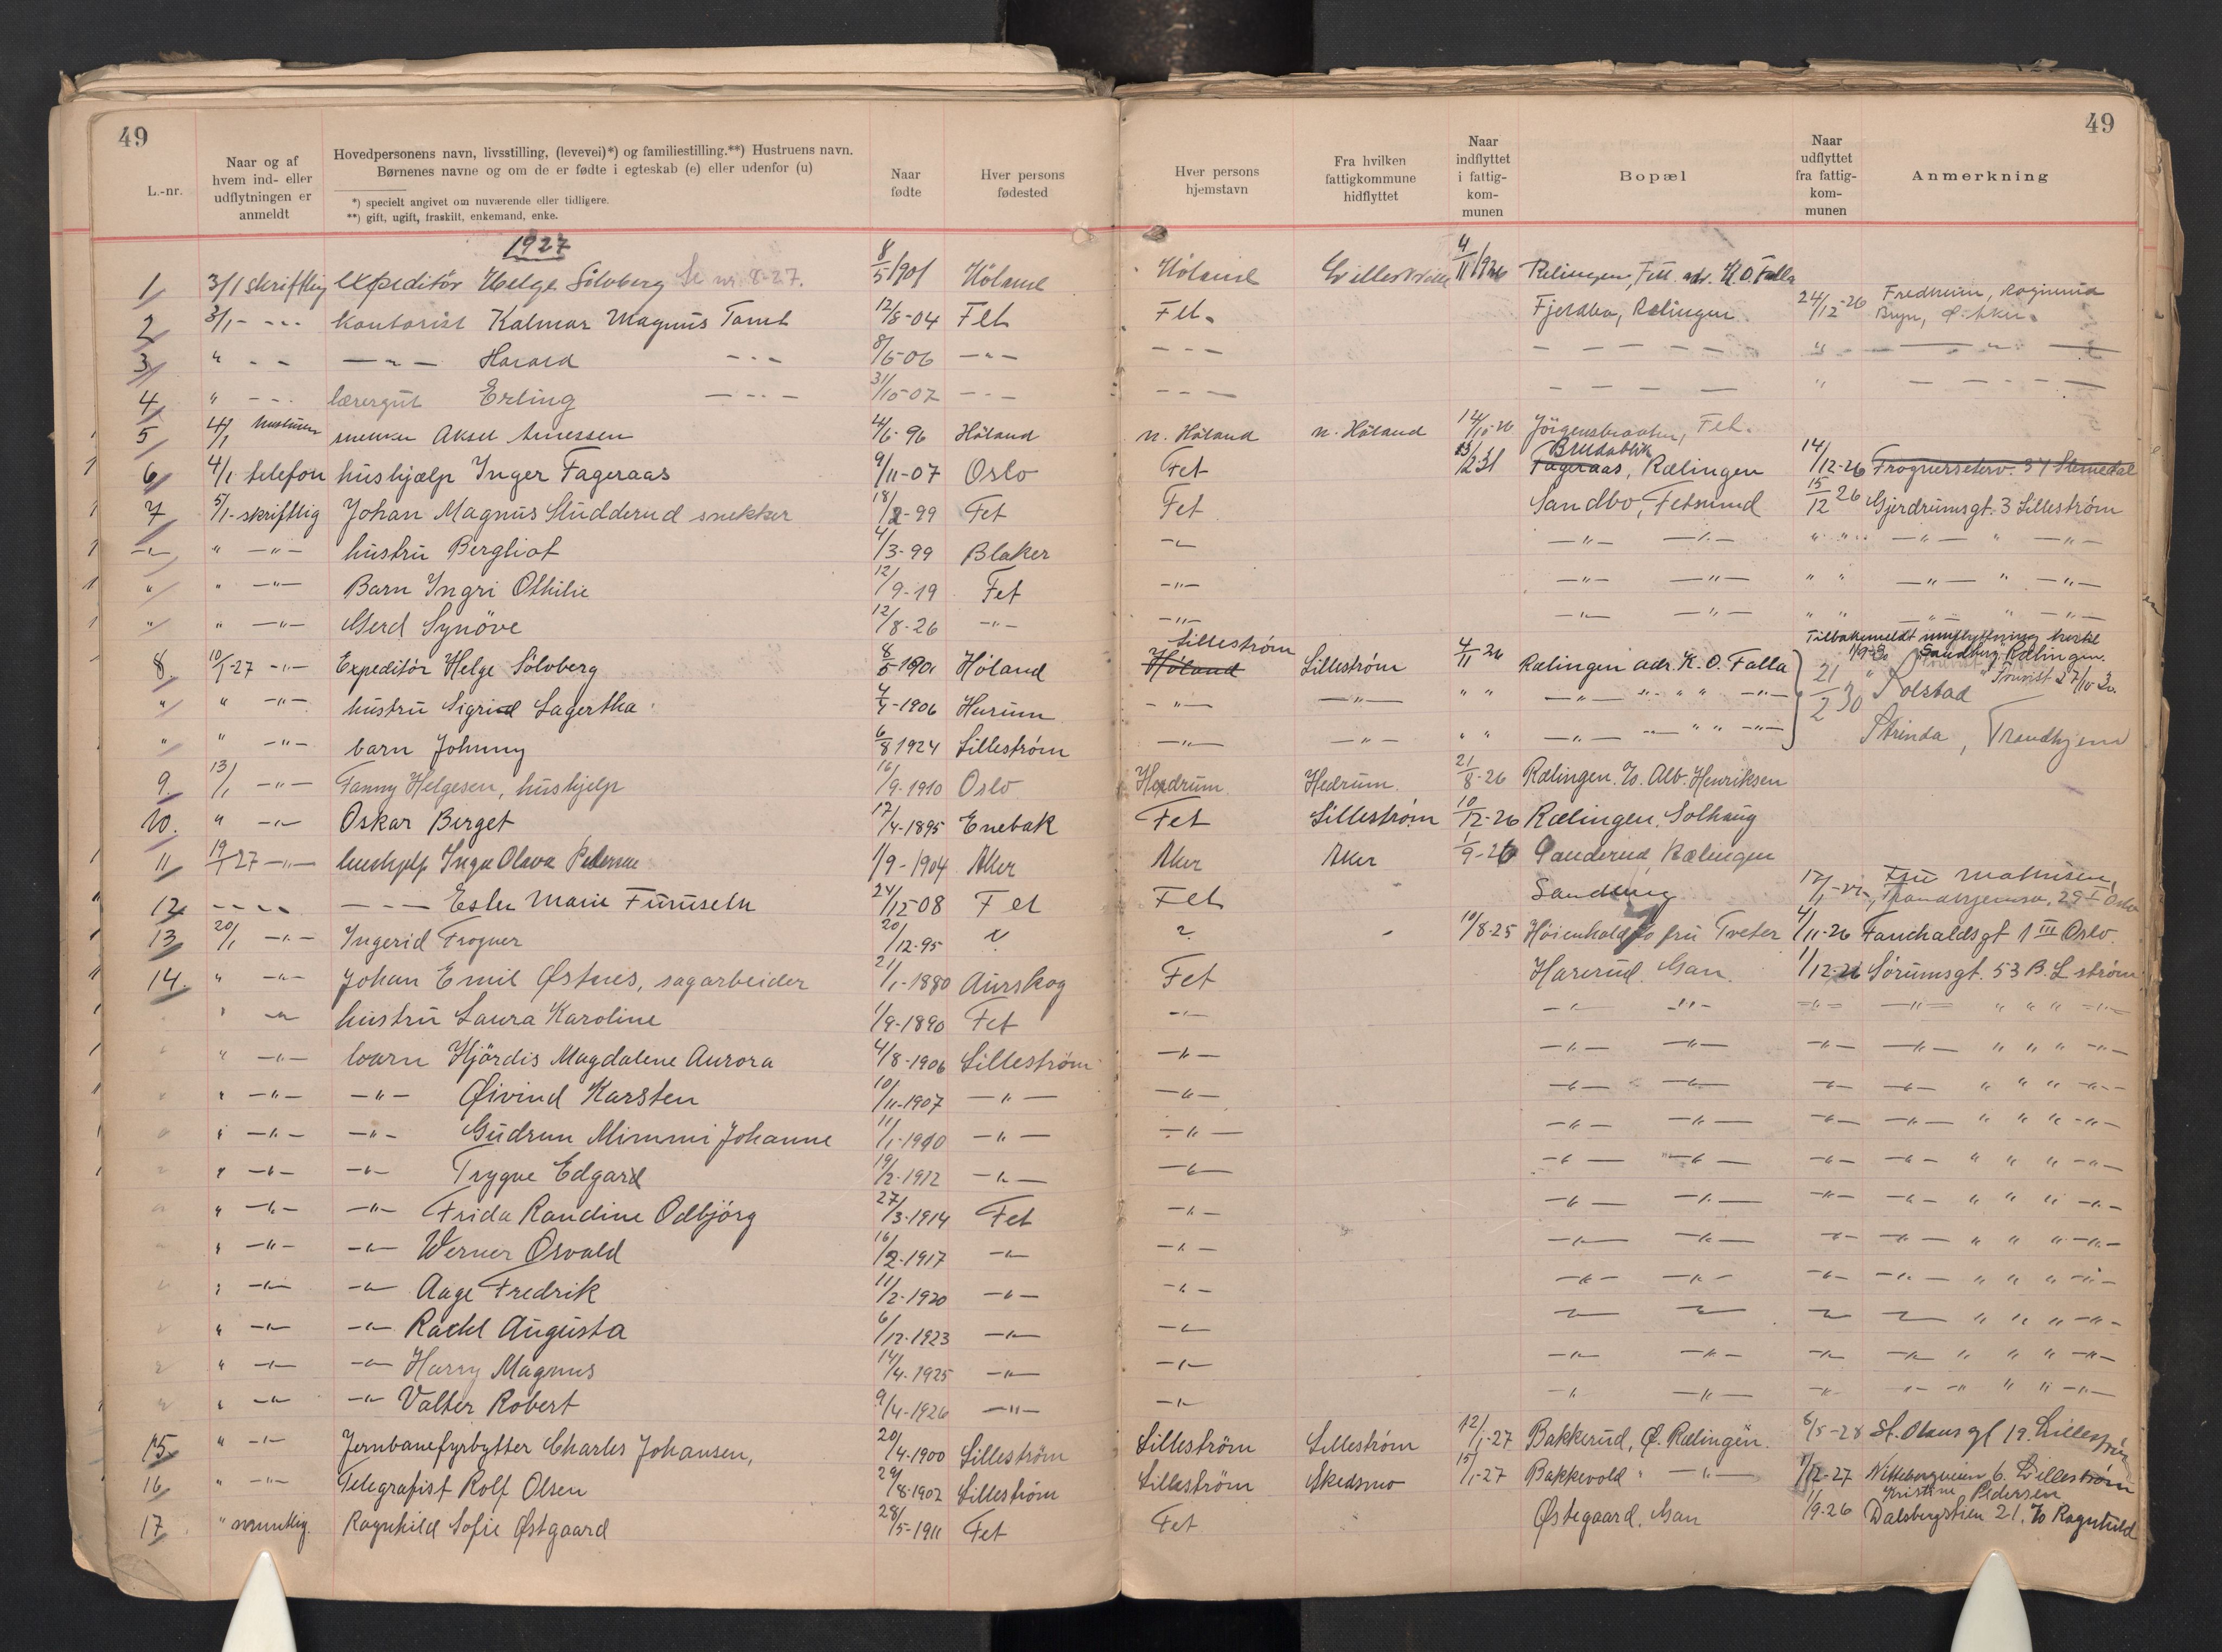 49
49
L.-nr.
Naar og af hvem ind- eller udflytningen er anmeldt
Hovedpersonens navn, livsstilling, (levevei)*) og familiestilling.**) Hustruens navn.
Børnenes navne og om de er fødte i egteskab (e) eller udenfor (u)
*) specielt angivet om nuværende eller tidligere.
**) gift, ugift, fraskilt, enkemand, enke.
Naar fødte
Hver persons fødested
Hver persons hjemstavn
Fra hvilken fattigkommune hidflyttet
Naar indflyttet i fattig-kom-munen
Bopæl
Naar udflyttet fra fattig-kom-munen
Anmerkning
1927
1 3/1 skriftlig expeditör Helge Sölvberg Se nr. 8-27. 8/5 1901 Höland Höland 4/11 1926 Relingen, Fet adr. K.O. Falla
2 3/1 - - - kontorist Kalmar Magnus Tomt 12/8-04 Fet Fet. Fjeldbo, Rælingen 24/12-26 Fredheim, Bryn, Ø. Aker.
3 " - - — " — Harald - - - 8/6-06 — " — - - - — — — — — " — " —
4 " - - - læregut Erling — - - — 31/10-07 - - - - - - — — — — " — - - —
5 4/1 snekker Aksel Arnessen 4/6-96 Höland n. Höland n. Höland 14/10-26 Jörgensbraaten, Fet.
6 4/1 telefon hushjælp Inger Fageraas 9/11-07 Oslo Fet 13/12 31 Bredablik Fageraas, Rælingen 14/12-26 Frognerseterv. 34 Slemdal
7 5/1-skriftlig Johan Magnus Studderud snekker 18/2-99 Fet Fet Sandbo, Fetsund 15/12 26 Gjerdrumsgt. 3 Lilleström
-"- " -"- hustru Bergliot 4/3-99 Blaker -"- -"- -"- " " -"- " -"-
" " -"- Barn Ingri Othilie 12/9-19 Fet -"- -"- -"- " " -"- " -"-
" " -"- Gerd Synöve 12/8-26 -"- -"- -"- -"- " " -"- " -"-
Tilbakemeldt Sandberg Rælingen.
8. 10/1-27 -"- Expeditör Helge Sölvberg 8/5 1901 Höland Lilleström Höland Lilleström 4/11 26 Rælingen adr. K.O. Falla 21/2 30 Solstad
" " -"- hustru Sigrid Lagertha 7/1-1906 Hurum -"- -"- " " -"- -"- " " -"-
" " -"- barn Johnny 6/8 1924 Lilleström -"- -"- " " -"- -"- " " -"- Strinda, Trondhjem
9. 13/1 -"- Fanny Helgesen, hushjelp 16/9-1910 Oslo Hedrum Hedrum. 21/8-26 Rælingen. c/o. Alb. Henriksen
10. " -"- Oskar Berget 17/4-1895 Enebak Fet Lilleström 10/12-26 Rælingen, Solhaug
11 19/1 27 -"- hushjelp Inga Olava Pedersen 1/9-1904 Aker Aker Aker 1/9-26 Sanderud Rælingen
12 - - - - — - - — Ester Marie Furuseth 24/12 08 Fet Fet 17/1 Fru Mathisen, 29 I Oslo
13 20/1 -"- Ingerid Frogner 20/12-95 ? ? - 10/8-25 fru Tveter 4/11-26 1 III Oslo.
14. " -"- Johan Emil Østnes, sagarbeider 21/1-1880 Aurskog Fet Harerud. Gan 1/12-26 Sörumsgt. 53 B. L ström
" -"- hustru Laura Karoline 1/9-1890 Fet -"- -"- -"- -"- -"- " " " -"-
" " -"- barn Hjördis Magdalene Aurora 4/8-1906 Lilleström -"- -"- -"- -"- -"- " " " -"-
" " -"- -"- Øivind Karsten 10/11-1907 -"- -"- -"- -"- -"- -"- " " " -"-
" " -"- -"- Gudrun Mimmi Johanne 11/1-1910 -"- -"- -"- -"- -"- -"- " " " -"-
" " -"- -"- Trygve Edgard 19/2-1912 -"- -"- -"- -"- -"- -"- " " " -"-
" " -"- -"- Frida Randine Odbjörg 27/3-1914 Fet -"- -"- -"- -"- -"- " " " -"-
" " -"- -"- Werner Osvald 16/2-1917 -"- -"- -"- -"- -"- -"- " " " -"-
" " -"- -"- Aage Fredrik 11/2-1920 -"- -"- -"- -"- -"- -"- " " " -"-
" " -"- -"- Rachel Augusta 6/12-1923 -"- -"- -"- -"- -"- -"- " " " -"-
" " -"- -"- Harry Magnus 14/4-1925 -"- -"- -"- -"- -"- -"- " " " -"-
" " -"- -"- Valter Robert 9/4-1926 -"- -"- -"- -"- -"- -"- " " " -"-
15 " -"- Jernbanefyrbytter Charles Johansen, 20/4-1900 Lilleström Lilleström Lilleström 12/1-27 Bakkerud, Ø. Rælingen. 8/5-28 St. Olavs gt 19. Lilleström
16 " -"- Telegrafist Rolf Olsen 29/8-1902 Lilleström Lilleström Skedsmo 15/1-27 Bakkevold " -"- 1/12-27 6. Lilleström
17. " muntlig. Ragnhild Sofie Østgaard 28/5-1911 Fet Fet Østegaard. Gan 1/9-26 Kristine Pedersen Dalsbergstien 21. c/o Ragnhild